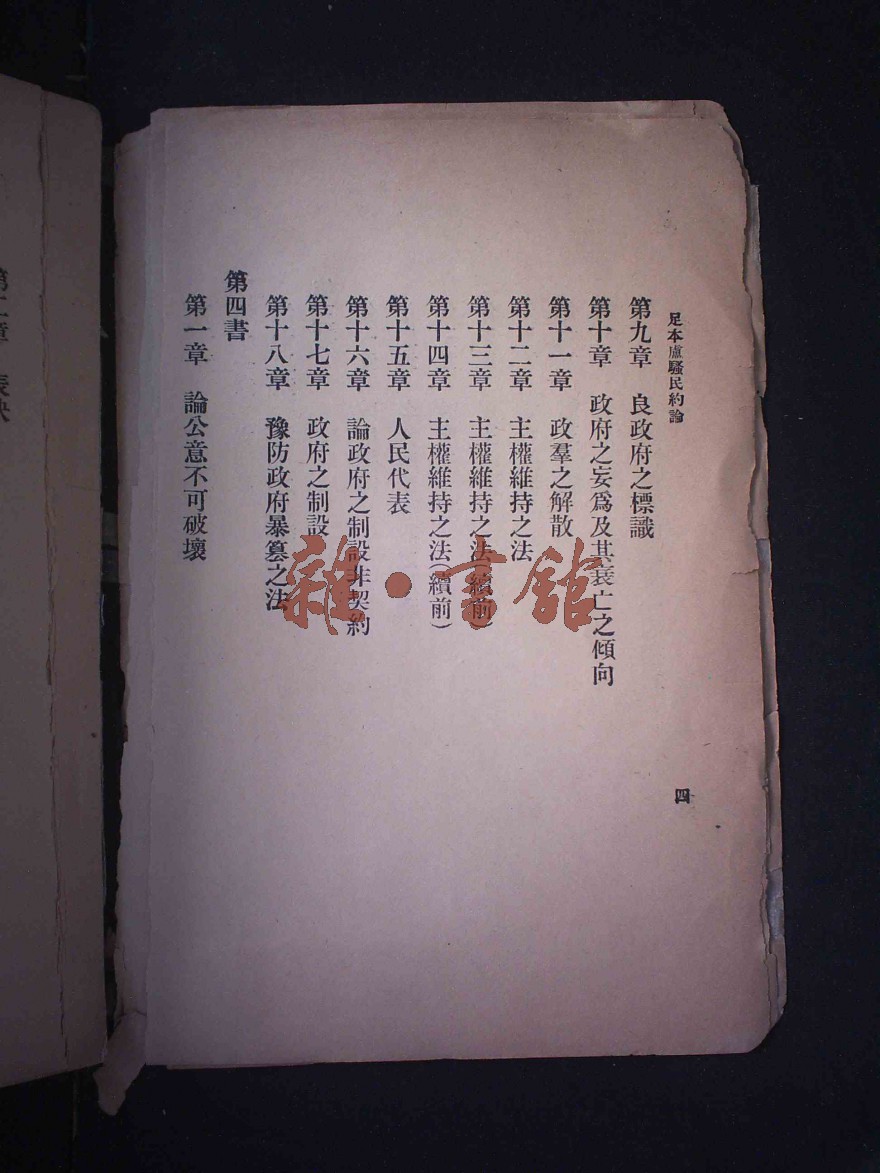 足本盧騷民約論
第九章 良政府之標識
第十章 政府之妄爲及其衰亡之傾向
第十一章 政羣之解散
第十二章 主權維持之法
第十三章 主權維持之法(續前)
第十四章 主權維持之法(續前)
第十五章 人民代表
第十六章 論政府之制設非契約
第十七章 政府之制設
第十八章 豫防政府暴篡之法
第四書
第一章 論公意不可破壞
四
雜·書館
第二章 表決